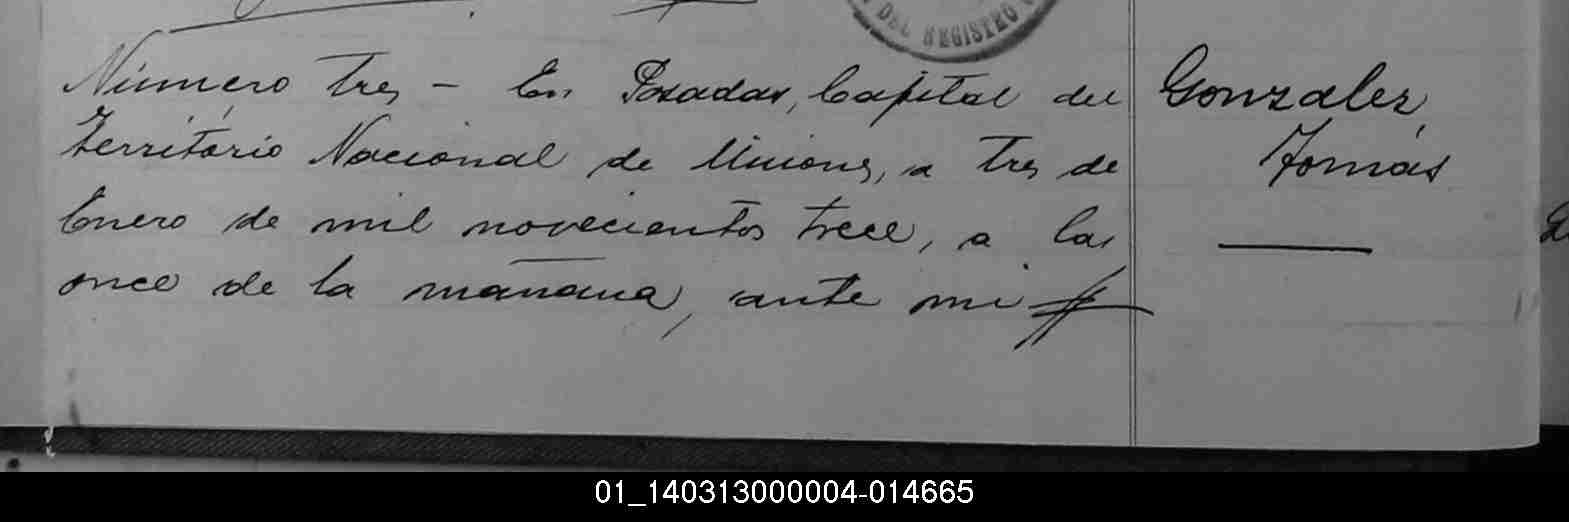 DEL REGISTRO
Número tres – En Posadas, Capital del
Territorio Nacional de Misiones, a tres de
Enero de mil novecientos trece, a las
once de la mañana, ante mi
Gonzalez,
Tomás
01_140313000004-014665